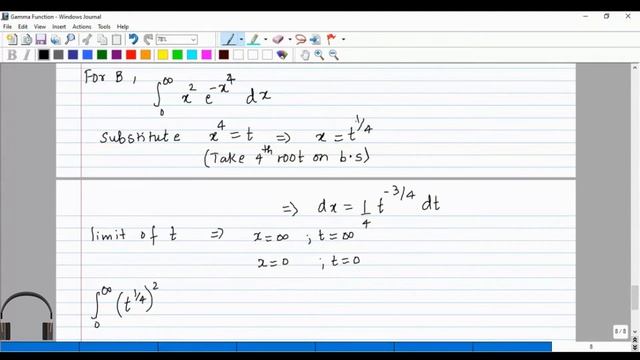 Gamma Function - Windows Journal
File Edit View Insert Actions Tools Help
78%
B I
For B,
∫₀^∞ x² e^{-x⁴} dx
Substitute x⁴ = t ⇒ x = t^{1/4}
(Take 4th root on b.s)
⇒ dx = 1/4 t^{-3/4} dt
limit of t ⇒ x=∞ ; t=∞
x=0 ; t=0
∫₀^∞ (t^{1/4})²
8 / 8
8